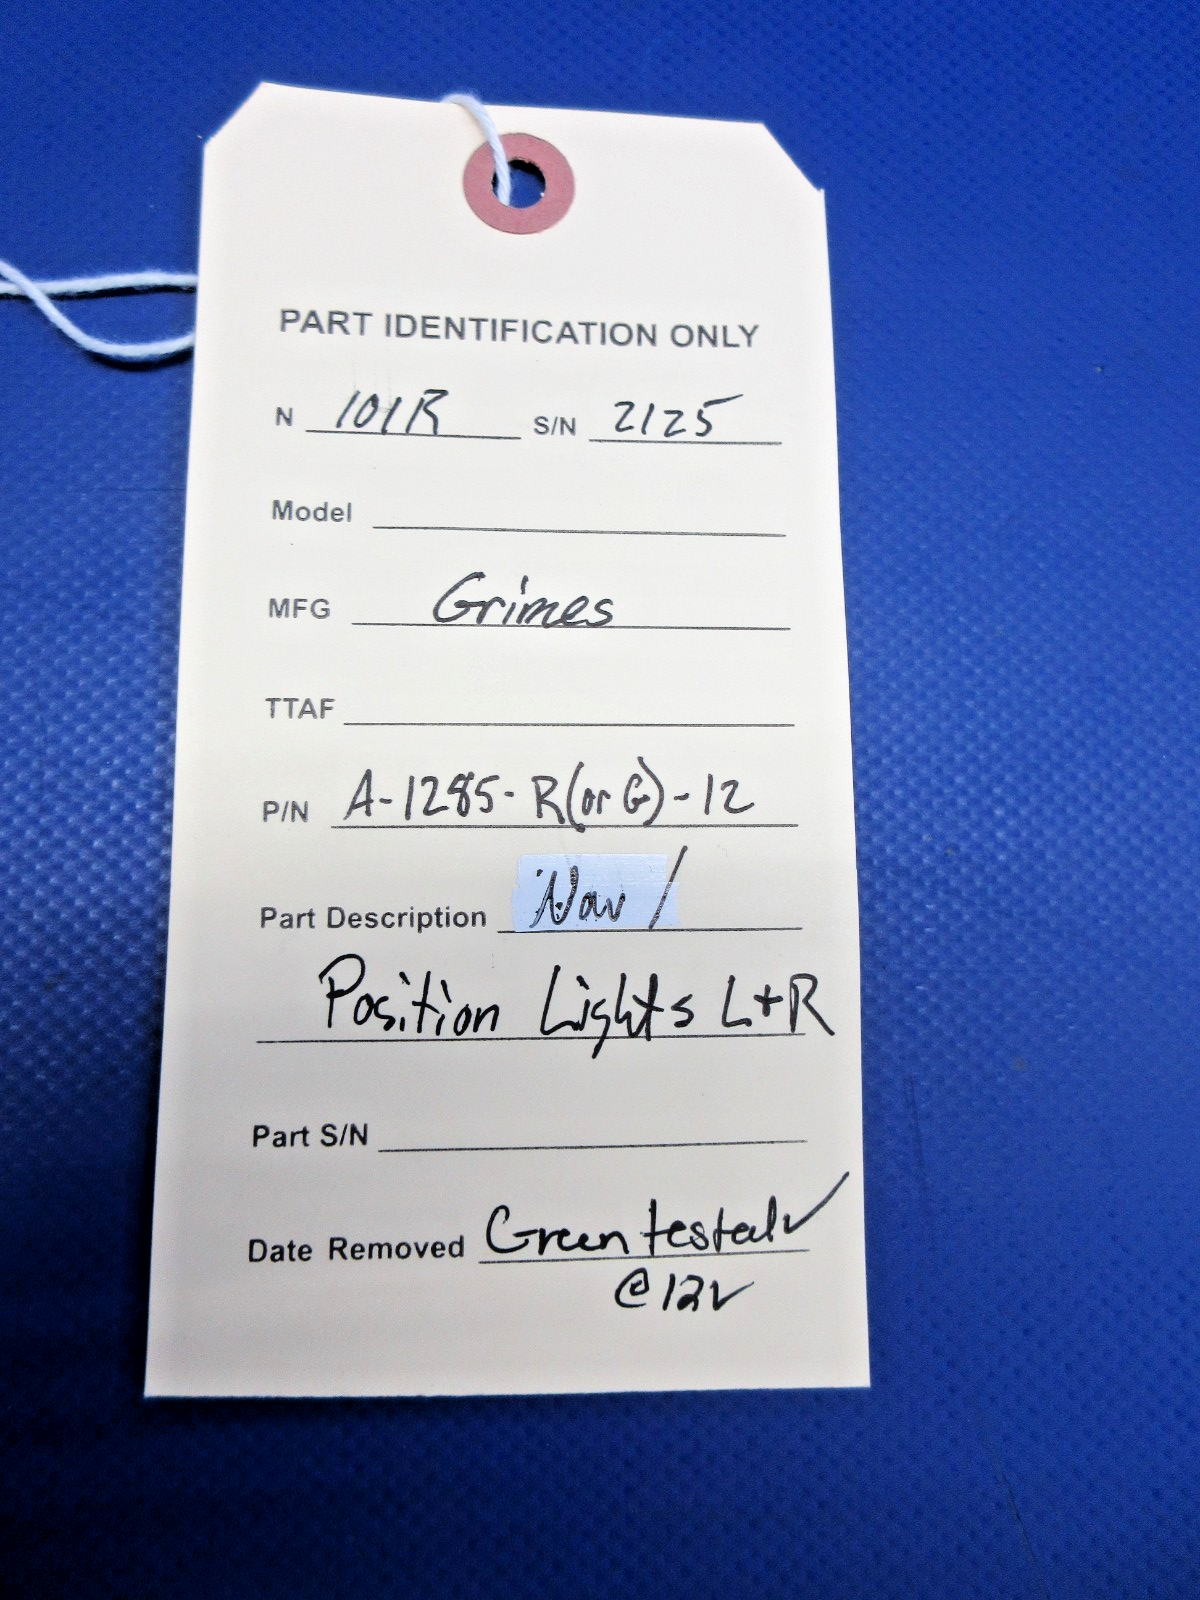 PART IDENTIFICATION ONLY
N 101R S/N 2125
Model
MFG Grimes
TTAF
P/N A-1285-R(or G)-12
Part Description Nav /
Position Lights L+R
Part S/N
Date Removed Green tested ✓
@12V